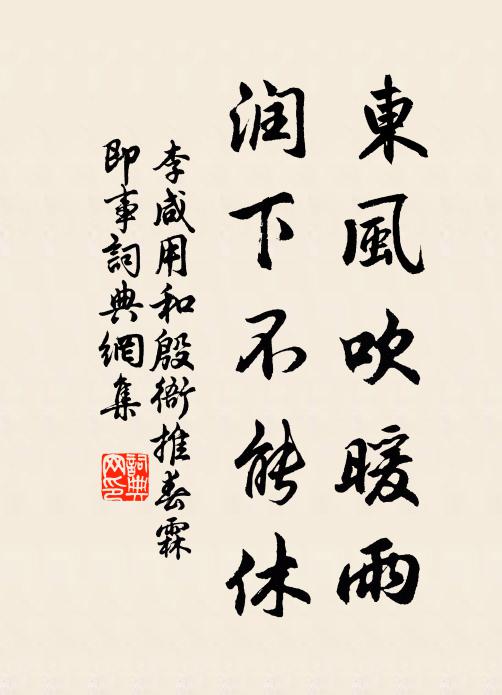 東風吹暖雨
润下不能休
李咸用和殷衙推春霖
即事詞典網集
詞典網印